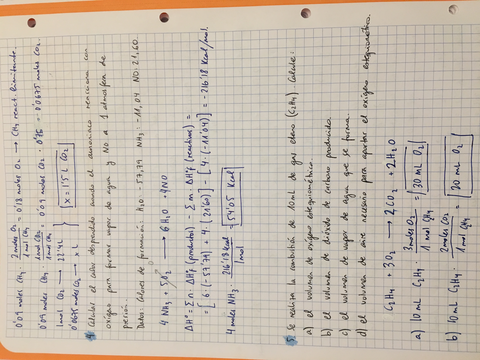 0'09 moles CH₄ · 2 moles O₂ / 1 mol CH₄ = 0'18 moles O₂ → CH₄ react. limitante.
0'09 moles CH₄ · 1 mol CO₂ / 1 mol CH₄ = 0'09 moles CO₂ · 0'75 = 0'0675 moles CO₂.
1 mol CO₂ → 22'4L
0'0675 moles CO₂ → x L } x = 1'5 L CO₂
4 Calcular el calor desprendido cuando el amoniaco reacciona con
oxígeno para formar vapor de agua y NO a 1 atmósfera de
presión.
Datos: Calores de formación: H₂O -57,79 NH₃: -11,04 NO: 21,60
4 NH₃ + 5O₂ → 6 H₂O + 4NO
ΔHº = Σ n · ΔHºf (productos) - Σ m · ΔHºf (reactivos) =
= [6 · (-57'79) + 4 · (21'60)] - [4 · (-11'04)] = -216'18 Kcal/mol.
4 moles NH₃ 216'18 kcal
1 mol = 54'05 Kcal
5 Se realiza la combustión de 10 mL de gas eteno (C₂H₄) Calcule:
a) el volumen de oxígeno estequiométrico
b) el volumen de dióxido de carbono producido.
c) el volumen de vapor de agua que se forma.
d) el volumen de aire necesario para aportar el oxígeno estequiométrico.
C₂H₄ + 3O₂ → 2CO₂ + 2H₂O
a) 10 mL C₂H₄ · 3 moles O₂ / 1 mol CH₄ = 30 mL O₂
b) 10 mL C₂H₄ · 2 moles CO₂ / 1 mol CH₄ = 20 mL O₂